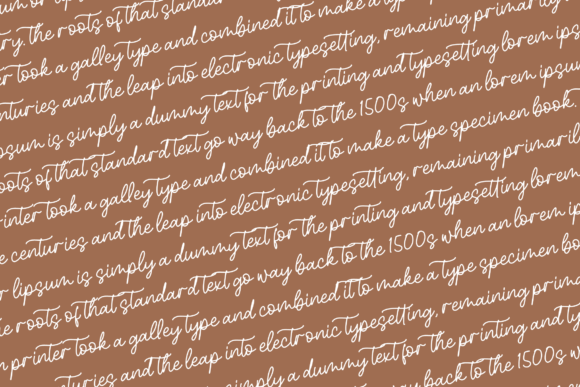 ry. the roots of that standar
er took a galley type and combined it to make a t
enturies and the leap into electronic typesetting, remaining primarily
psum is simply a dummy text for the printing and typesetting lorem ips
oots of that standard text go way back to the 1500s when an lorem ipsum
rinter took a galley type and combined it to make a type specimen book.
e centuries and the leap into electronic typesetting, remaining primaril
r lipsum is simply a dummy text for the printing and typesetting lorem
e roots of that standard text go way back to the 1500s when an lorem ip
n printer took a galley type and combined it to make a type specimen bo
centuries and the leap into electronic typesetting, remaining prima
simply a dummy text for the printing and ty
way back to the 1500s w